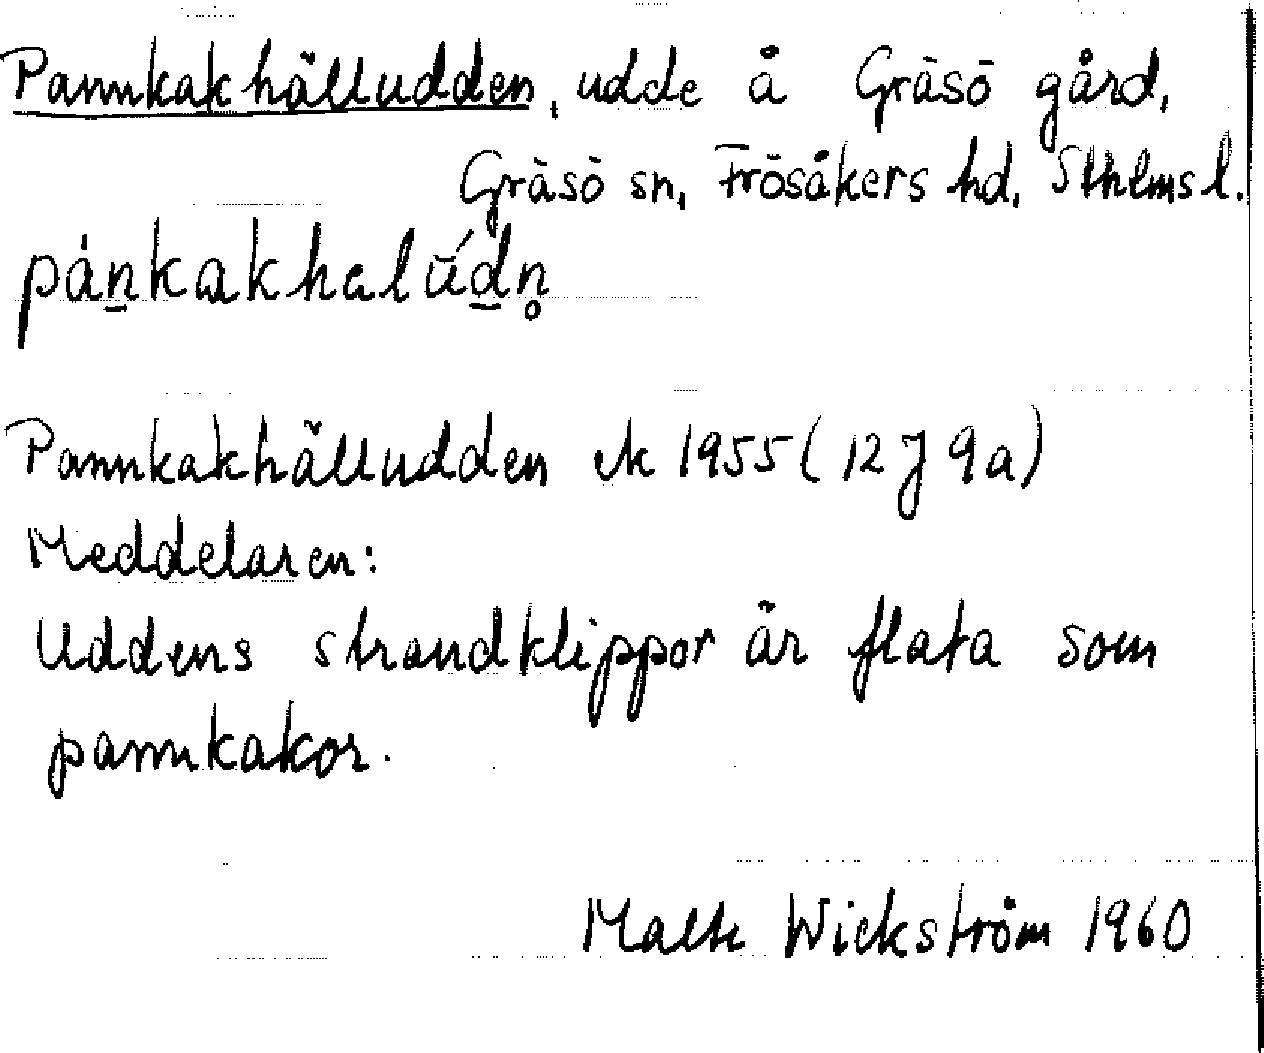 Pannkakhälludden, udde å Gräsö gård,
Gräsö sn, Frösåkers hd, Sthlms l.
pánkakhalū́dn̥
Pannkakhälludden ek 1955 (12 J 9a)
Meddelaren:
Uddens strandklippor är flata som
pannkakor.
Malte Wickström 1960